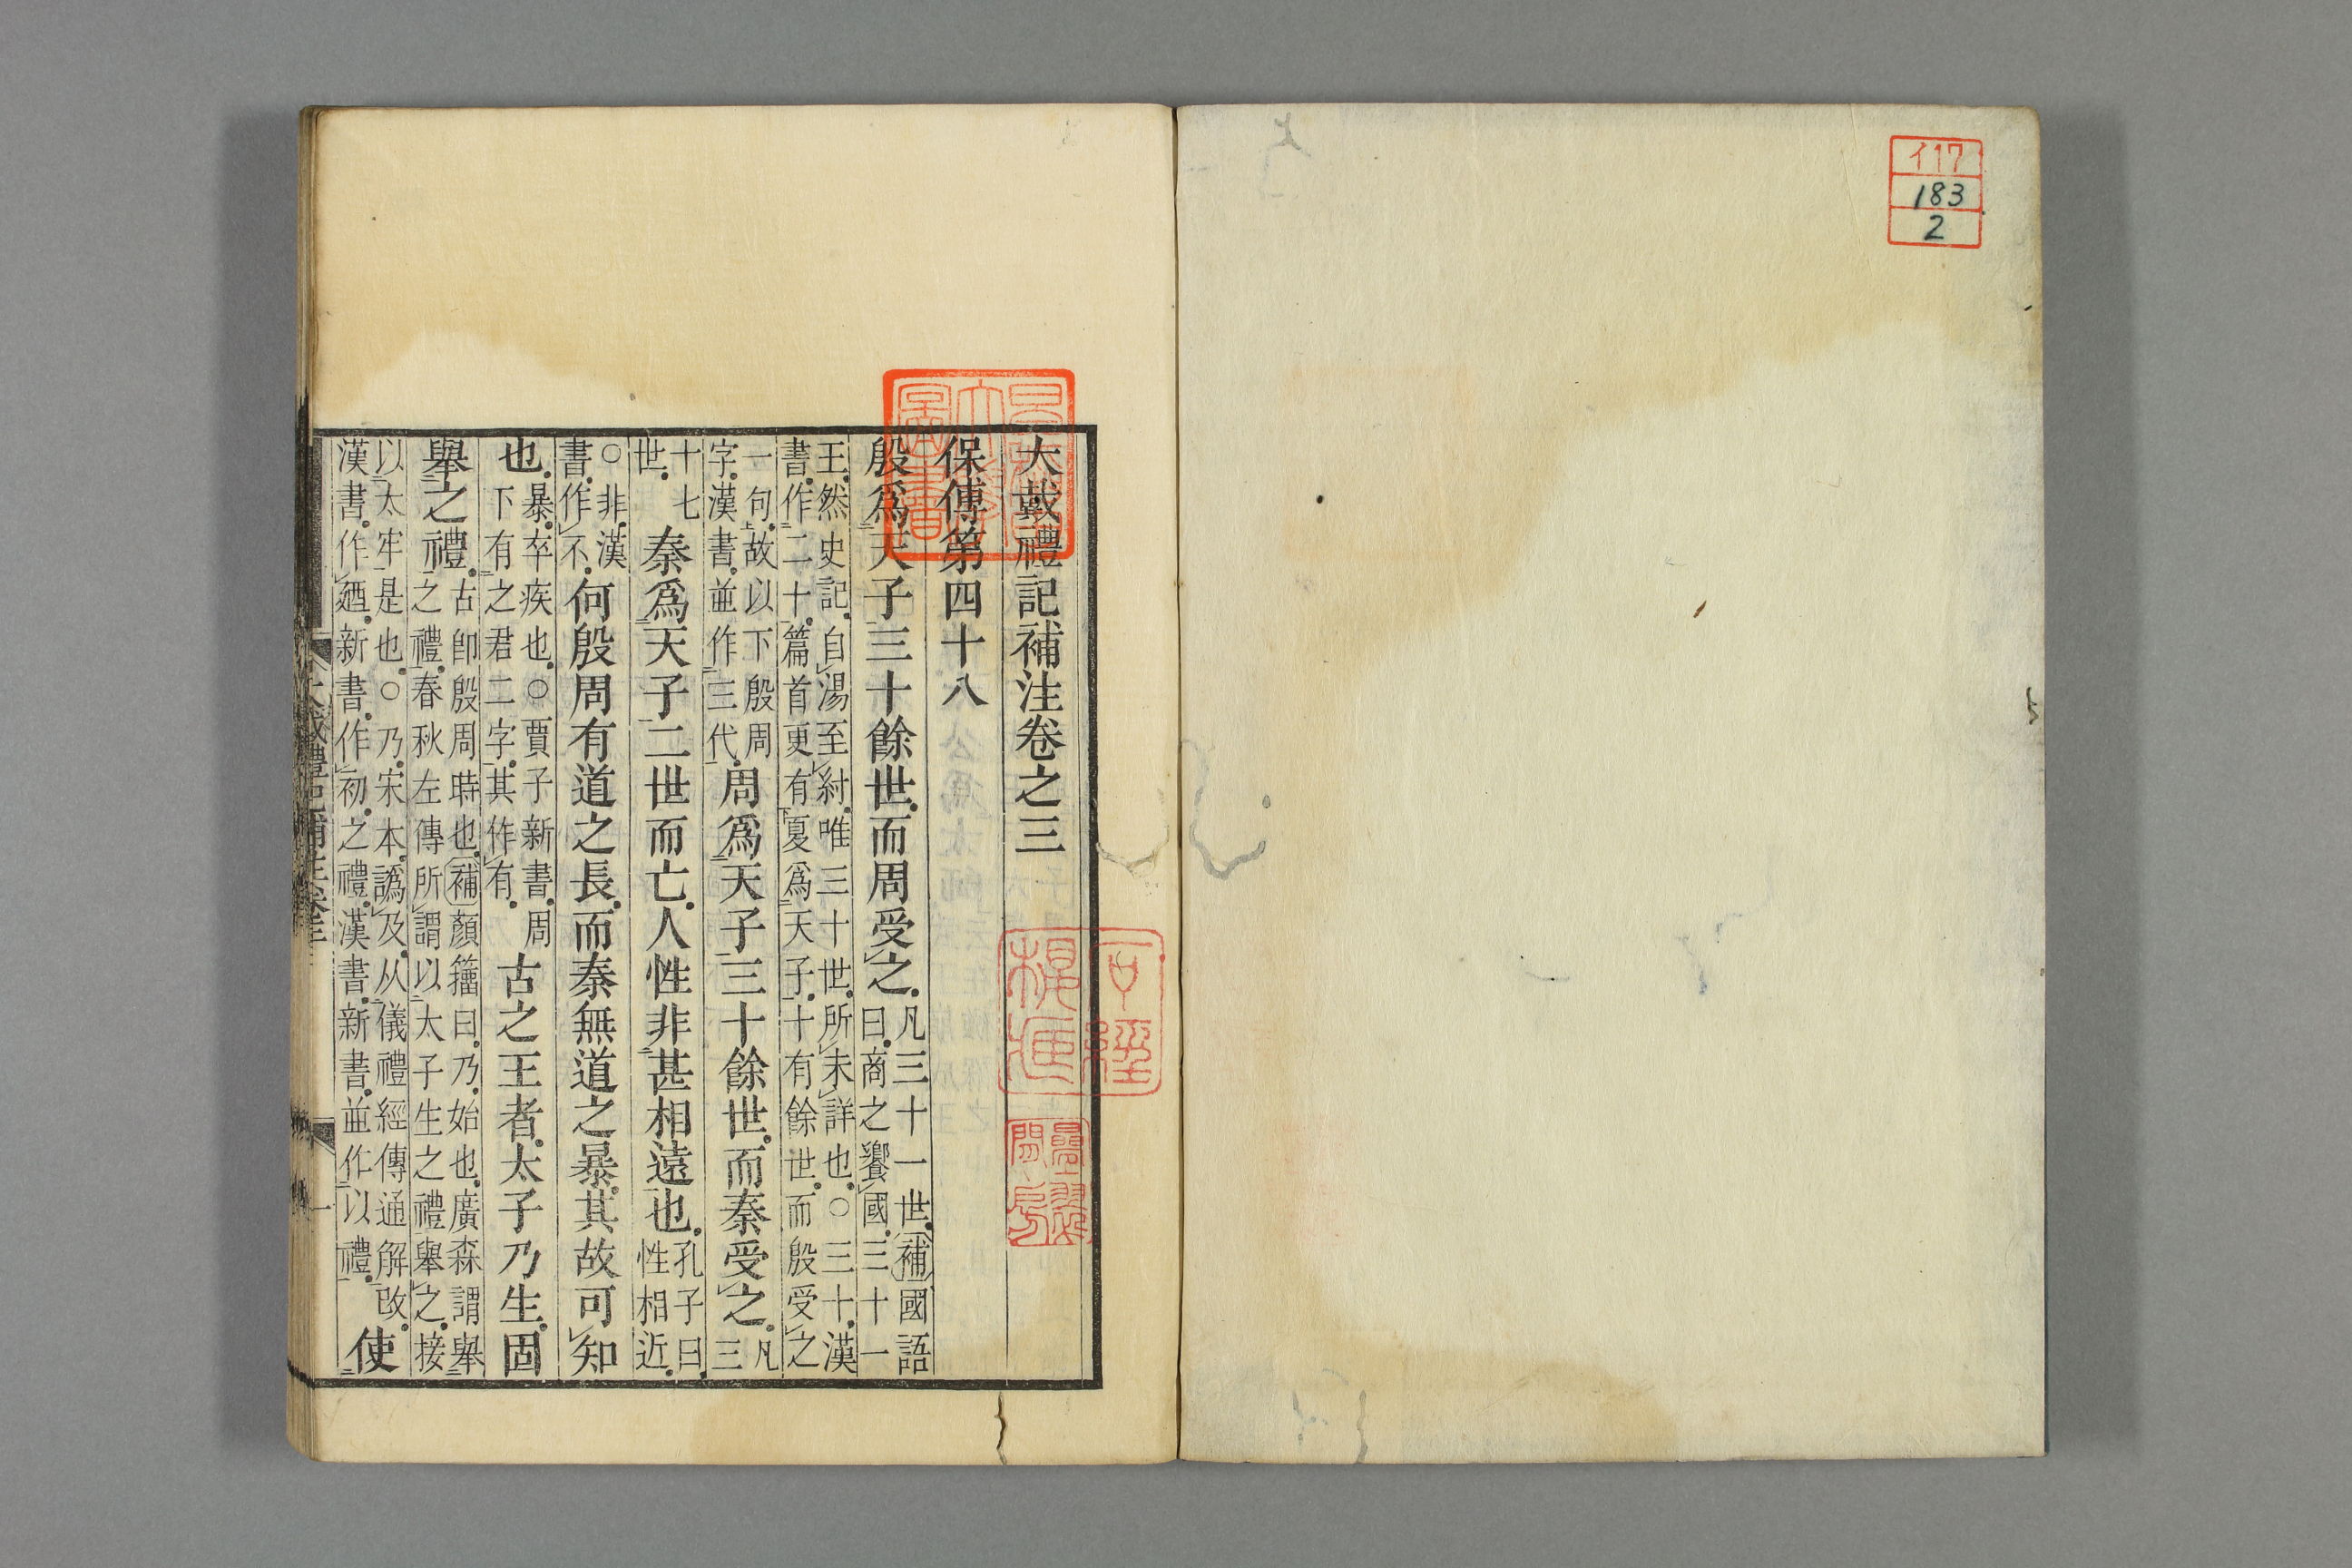 イ17
183
2
大戴禮記補注卷之三
保傅第四十八
殷爲天子三十餘世而周受之凡三十一世補國語
曰商之饗國三十一
王然史記自湯至紂唯三十世所未詳也○三十漢
書作二十篇首更有夏爲天子十有餘世而殷受之
一句故以下殷周
字漢書並作三代周爲天子三十餘世而秦受之凡
三
十七
世秦爲天子二世而亡人性非甚相遠也孔子曰
性相近
○非漢
書作不何殷周有道之長而秦無道之暴其故可知
也暴卒疾也○賈子新書周
下有之君二字其作有古之王者太子乃生固
舉之禮古卽殷周時也補顏籀曰乃始也廣森謂舉
之禮春秋左傳所謂以太子生之禮舉之接
以太牢是也○乃宋本譌及从儀禮經傳通解改
漢書作迺新書作初之禮漢書新書並作以禮使